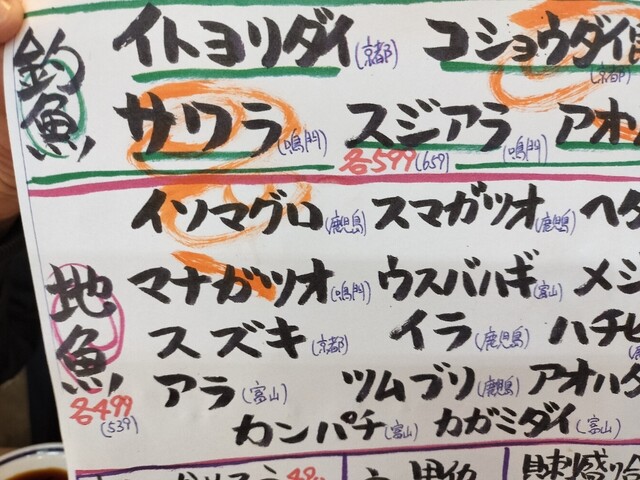 釣魚
イトヨリダイ(京都) コショウダイ(京都)
サワラ(鳴門) スジアラ(鳴門) アオハ
各599(659)
イソマグロ(鹿児島) スマガツオ(鹿児島) ヘダ
地魚
各499
(539)
マナガツオ(鳴門) ウスバハギ(富山) メジ
スズキ(京都) イラ(鹿児島) ハチビ
アラ(富山) ツムブリ(鹿児島) アオハタ
カンパチ(富山) カガミダイ(富山)
刺盛り合